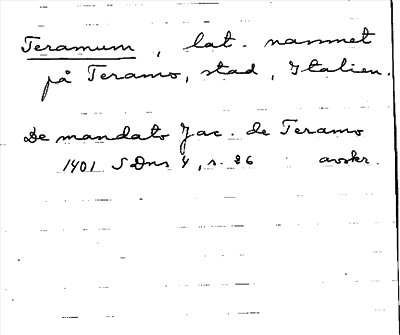 Teramum, lat. namnet
på Teramo, stad, Italien.
De mandato Jac. de Teramo
1401 SDns 4, s. 86 avskr.